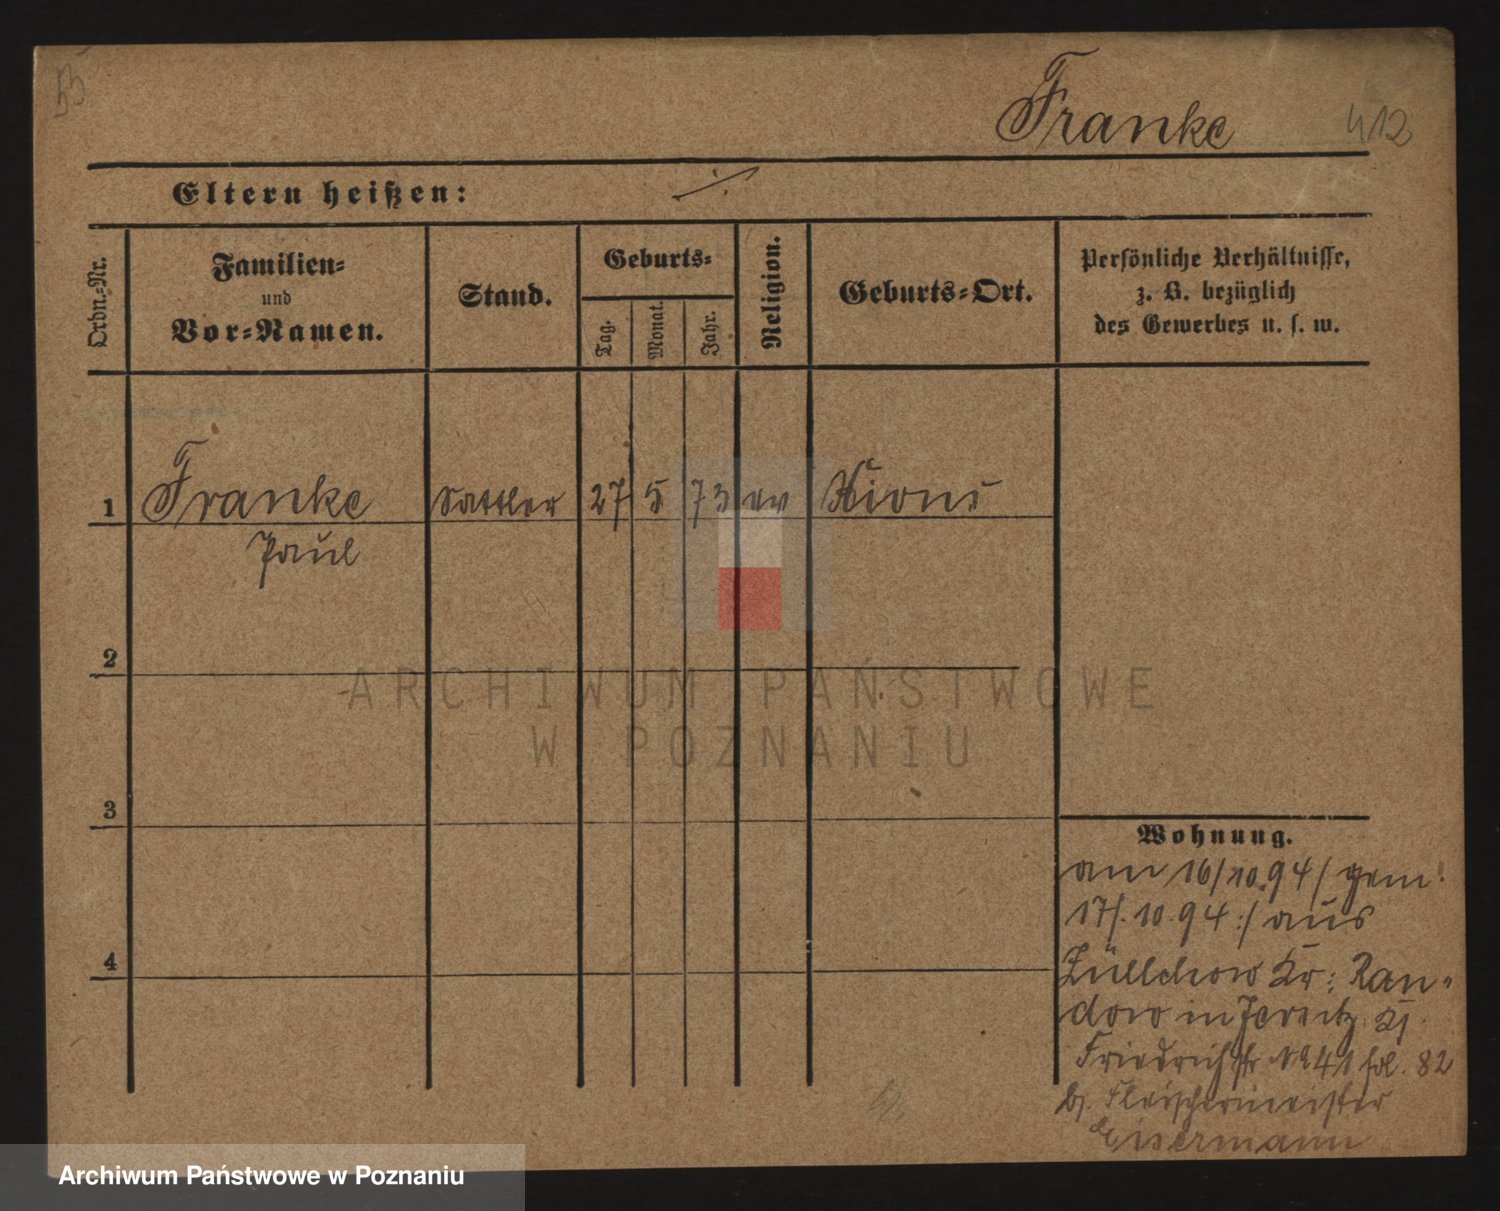 Franke
412
Eltern heißen: ./.
Ordn.-Nr.
Familien-
und
Vor-Namen.
Stand.
Geburts-
Tag.
Monat.
Jahr.
Religion.
Geburts-Ort.
Persönliche Verhältnisse,
z. B. bezüglich
des Gewerbes u. s. w.
1 Franke Sattler 27 5 73 ev Xions
Paul
2
3
4
Wohnung.
am 16/10.94 / gem.
17/.10.94 :/ aus
Züllchow Kr: Ran-
dow in Jersitz
Friedrichstr No 41 fol. 82
b. Fleischermeister
Eisermann
ARCHIWUM PAŃSTWOWE
W POZNANIU
Archiwum Państwowe w Poznaniu